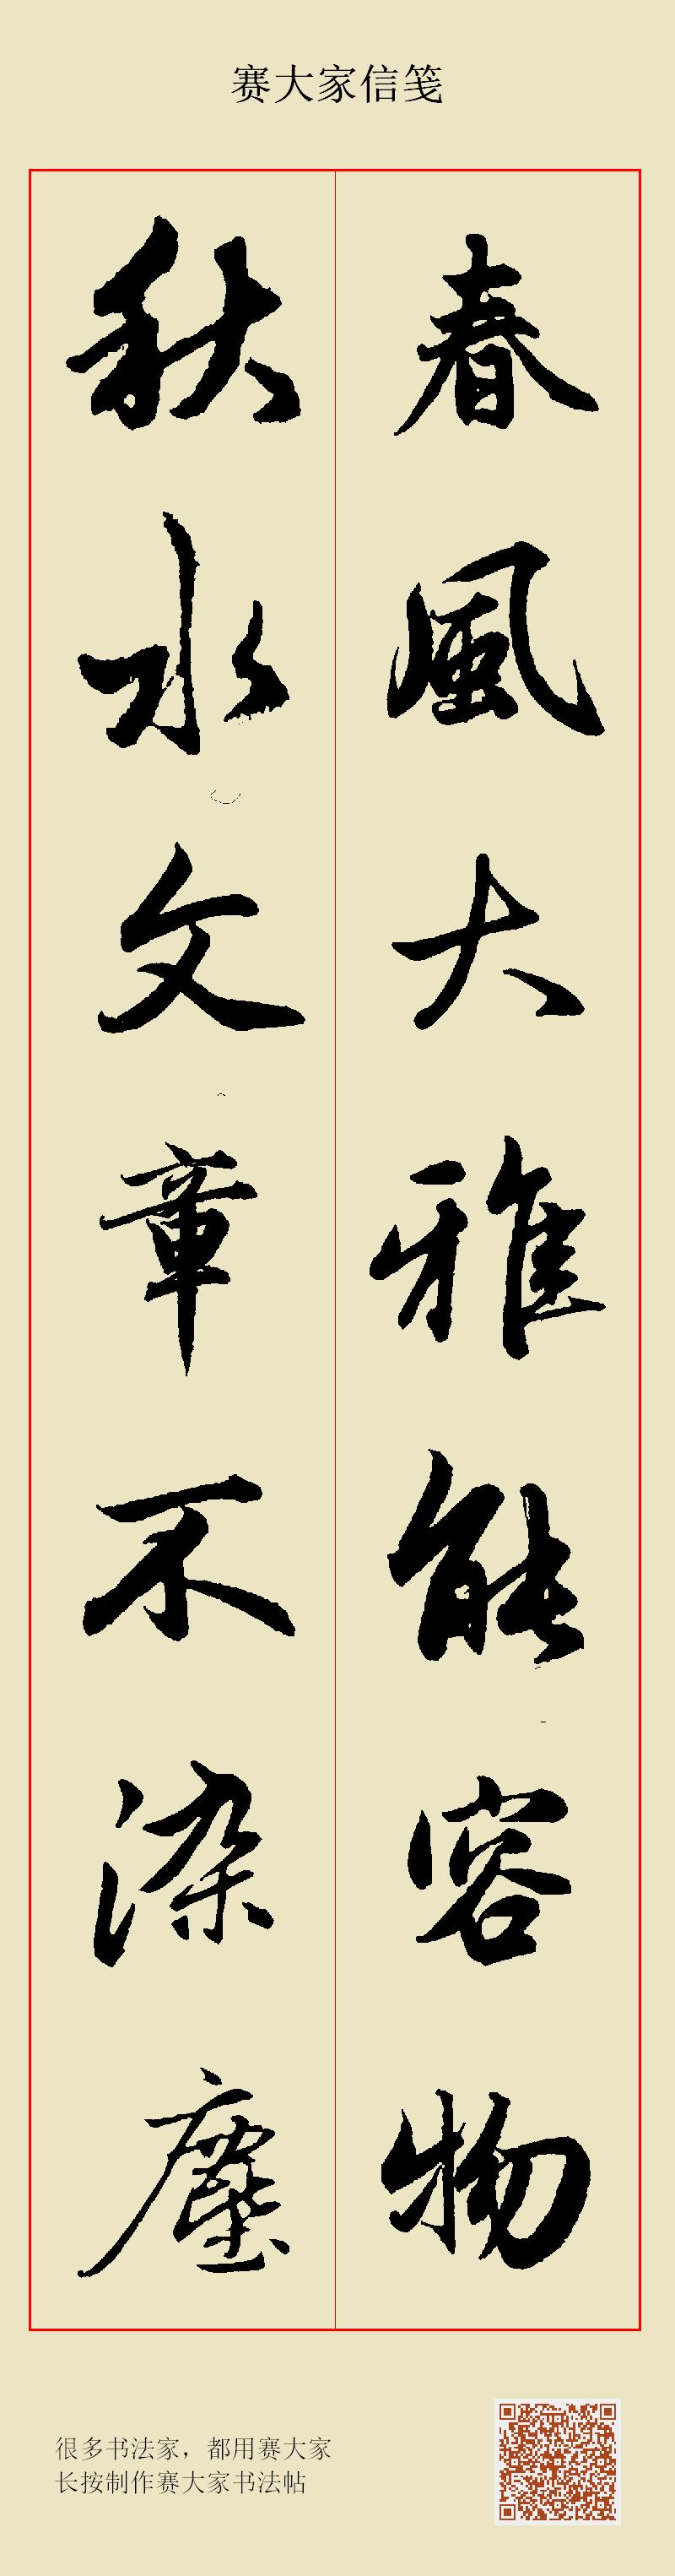 赛大家信笺
春風大雅能容物
秋水文章不染塵
很多书法家，都用赛大家
长按制作赛大家书法帖